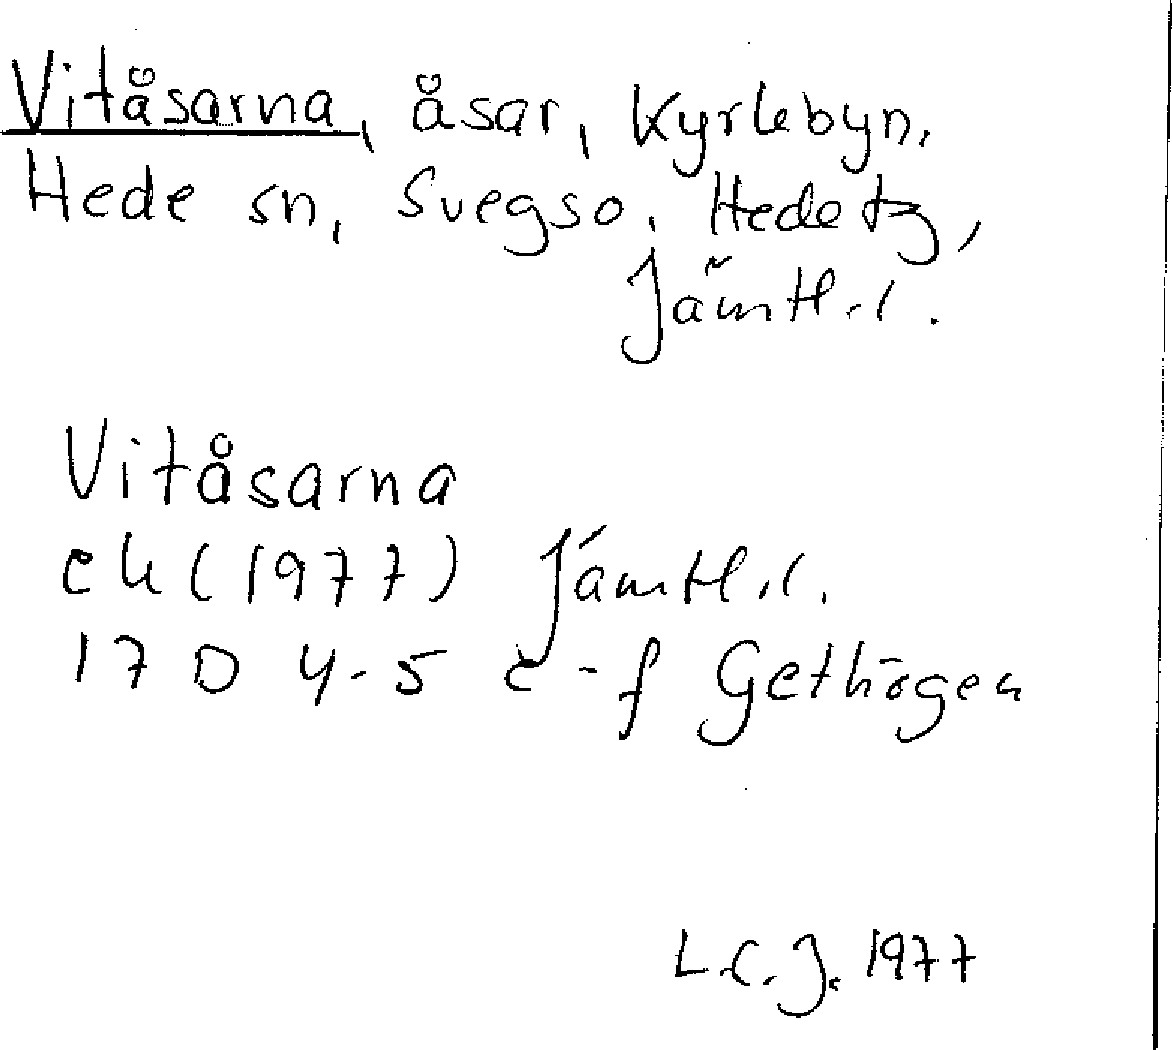 Vitåsarna, åsar, Kyrkbyn.
Hede sn, Svegs o. Hede tg,
Jämtl. l.
Vitåsarna
ek (1977) Jämtl. l.
17 D 4-5 e-f Gethögen
L. C. J. 1977